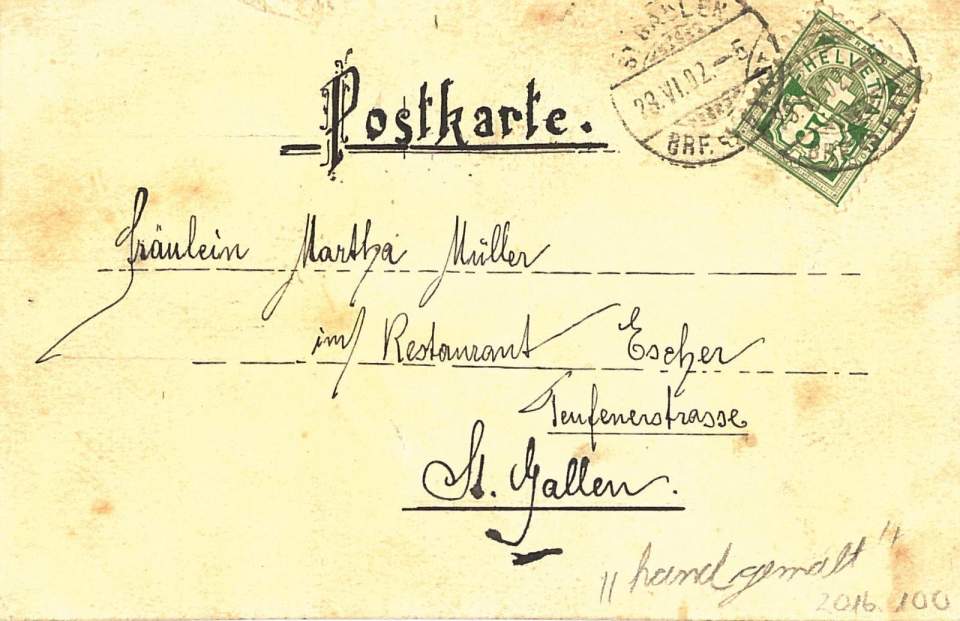 ST GALLEN
28.VI.02.-5
BRF.
HELVETIA
5
Postkarte.
Fräulein Martha Müller
im Restaurant Escher
Teufenerstrasse
St. Gallen.
"handgemalt"
2016.100